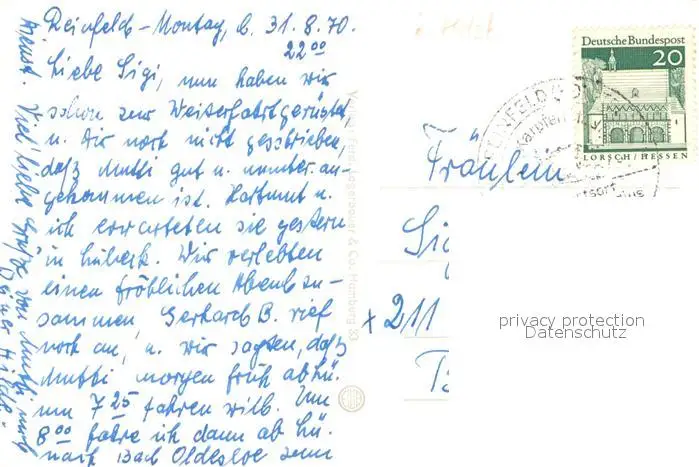 Reinfeld - Montag, d. 31.8.70.
22⁰⁰
Liebe Sigi, nun haben wir
schon zur Weiterfahrt gerüstet
u. Dir noch nicht geschrieben,
daß Mutti gut u. munter an-
gekommen ist. Hartmut u.
ich erwarteten sie gestern
in Lübeck. Wir verlebten
einen fröhlichen Abend zu-
sammen. Gerhard B. rief
noch an, u. wir sagten, daß
Mutti morgen früh ab Lü.
um 7²⁵ fahren will. Um
8⁰⁰ fahre ich dann ab Lü.
nach Bad Oldesloe zum
Dienst. Viel liebe Grüße von Mutti und
Deiner Hilde.
Deutsche Bundespost
20
LORSCH/HESSEN
REINFELD
Karpfen
Fräulein
Sig
x 211
privacy protection
Datenschutz
& Co. Hamburg 33